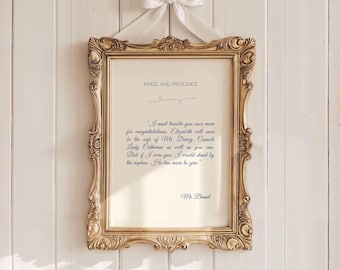 PRIDE AND PREJUDICE
"I must trouble you once more
for congratulations. Elizabeth will soon
be the wife of Mr. Darcy. Console
Lady Catherine as well as you can.
But, if I were you, I would stand by
the nephew. He has more to give."
Mr. Bennet